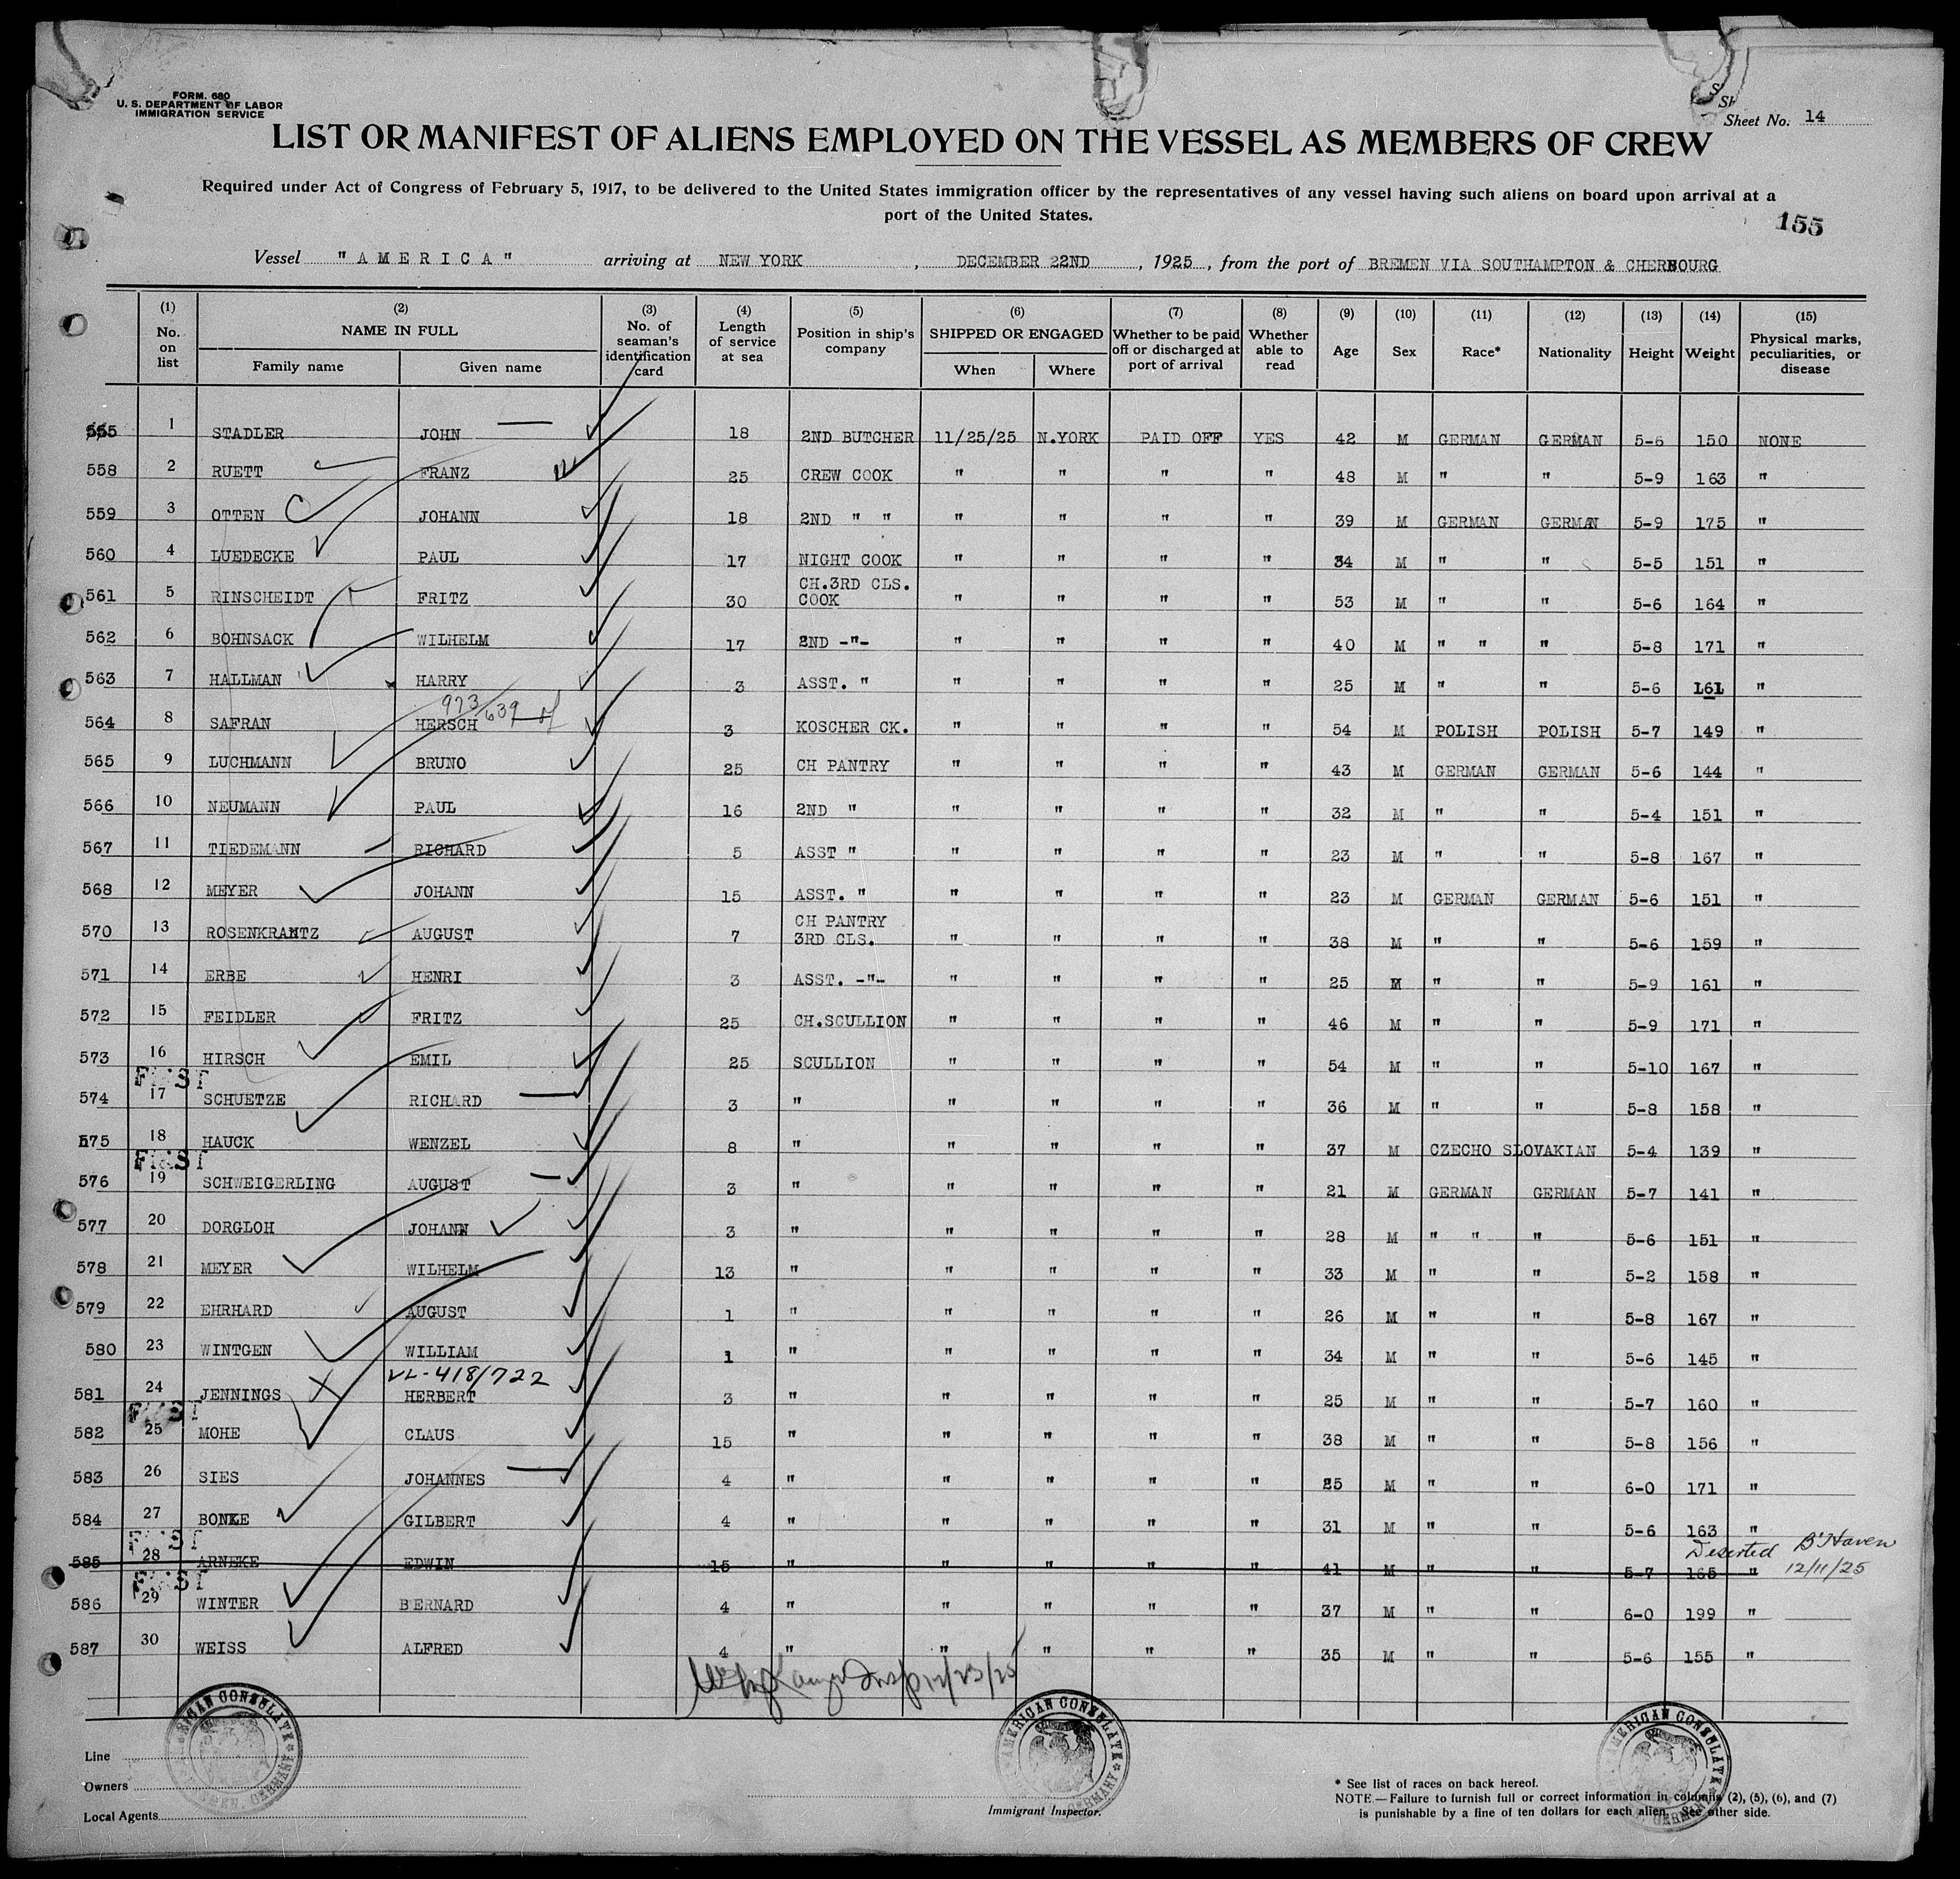 FORM. 680
U. S. DEPARTMENT OF LABOR
IMMIGRATION SERVICE
Sheet No. 14
LIST OR MANIFEST OF ALIENS EMPLOYED ON THE VESSEL AS MEMBERS OF CREW
Required under Act of Congress of February 5, 1917, to be delivered to the United States immigration officer by the representatives of any vessel having such aliens on board upon arrival at a
port of the United States.
155
Vessel "AMERICA" arriving at NEW YORK, DECEMBER 22ND, 1925, from the port of BREMEN VIA SOUTHAMPTON & CHERBOURG
(1) No. on list (2) NAME IN FULL Family name Given name (3) No. of seaman's identification card (4) Length of service at sea (5) Position in ship's company (6) SHIPPED OR ENGAGED When Where (7) Whether to be paid off or discharged at port of arrival (8) Whether able to read (9) Age (10) Sex (11) Race* (12) Nationality (13) Height (14) Weight (15) Physical marks, peculiarities, or disease
555 1 STADLER JOHN 18 2ND BUTCHER 11/25/25 N.YORK PAID OFF YES 42 M GERMAN GERMAN 5-6 150 NONE
558 2 RUETT FRANZ 25 CREW COOK " " " " 48 M " " 5-9 163 "
559 3 OTTEN JOHANN 18 2ND " " " " " " 39 M GERMAN GERMAN 5-9 175 "
560 4 LUEDECKE PAUL 17 NIGHT COOK " " " " 34 M " " 5-5 151 "
561 5 RINSCHEIDT FRITZ 30 CH.3RD CLS. COOK " " " " 53 M " " 5-6 164 "
562 6 BOHNSACK WILHELM 17 2ND -"- " " " " 40 M " " " 5-8 171 "
563 7 HALLMAN HARRY 3 ASST. " " " " " 25 M " " 5-6 161 "
973/639
564 8 SAFRAN HERSCH 3 KOSCHER CK. " " " " 54 M POLISH POLISH 5-7 149 "
565 9 LUCHMANN BRUNO 25 CH PANTRY " " " " 43 M GERMAN GERMAN 5-6 144 "
566 10 NEUMANN PAUL 16 2ND " " " " " 32 M " " 5-4 151 "
567 11 TIEDEMANN RICHARD 5 ASST " " " " " 23 M " " 5-8 167 "
568 12 MEYER JOHANN 15 ASST. " " " " " 23 M GERMAN GERMAN 5-6 151 "
570 13 ROSENKRANTZ AUGUST 7 CH PANTRY 3RD CLS. " " " " 38 M " " 5-6 159 "
571 14 ERBE HENRI 3 ASST. -"- " " " " 25 M " " 5-9 161 "
572 15 FEIDLER FRITZ 25 CH.SCULLION " " " " 46 M " " 5-9 171 "
573 16 HIRSCH EMIL 25 SCULLION " " " " 54 M " " 5-10 167 "
FIRST
574 17 SCHUETZE RICHARD 3 " " " " " 36 M " " 5-8 158 "
575 18 HAUCK WENZEL 8 " " " " " 37 M CZECHO SLOVAKIAN 5-4 139 "
FIRST
576 19 SCHWEIGERLING AUGUST 3 " " " " " 21 M GERMAN GERMAN 5-7 141 "
577 20 DORGLOH JOHANN 3 " " " " " 28 M " " " 5-6 151 "
578 21 MEYER WILHELM 13 " " " " " 33 M " " 5-2 158 "
579 22 EHRHARD AUGUST 1 " " " " " 26 M " " 5-8 167 "
580 23 WINTGEN WILLIAM 1 " " " " " 34 M " " 5-6 145 "
VL-418/722
581 24 JENNINGS HERBERT 3 " " " " " 25 M " " 5-7 160 "
FIRST
582 25 MOHE CLAUS 15 " " " " " 38 M " " 5-8 156 "
583 26 SIES JOHANNES 4 " " " " " 25 M " " 6-0 171 "
584 27 BONKE GILBERT 4 " " " " " 31 M " " 5-6 163 "
FIRST
Deserted B'Haven
585 28 ARNEKE EDWIN 15 " " " " " 41 M " " 5-7 165 " 12/11/25
FIRST
586 29 WINTER BERNARD 4 " " " " " 37 M " " 6-0 199 "
587 30 WEISS ALFRED 4 " " " " " 35 M " " 5-6 155 "
AMERICAN CONSULATE
BREMEN, GERMANY
AMERICAN CONSULATE
GERMANY
AMERICAN CONSULATE
GERMANY
Line
Owners
Local Agents
Immigrant Inspector.
* See list of races on back hereof.
NOTE.—Failure to furnish full or correct information in columns (2), (5), (6), and (7)
is punishable by a fine of ten dollars for each alien. See other side.